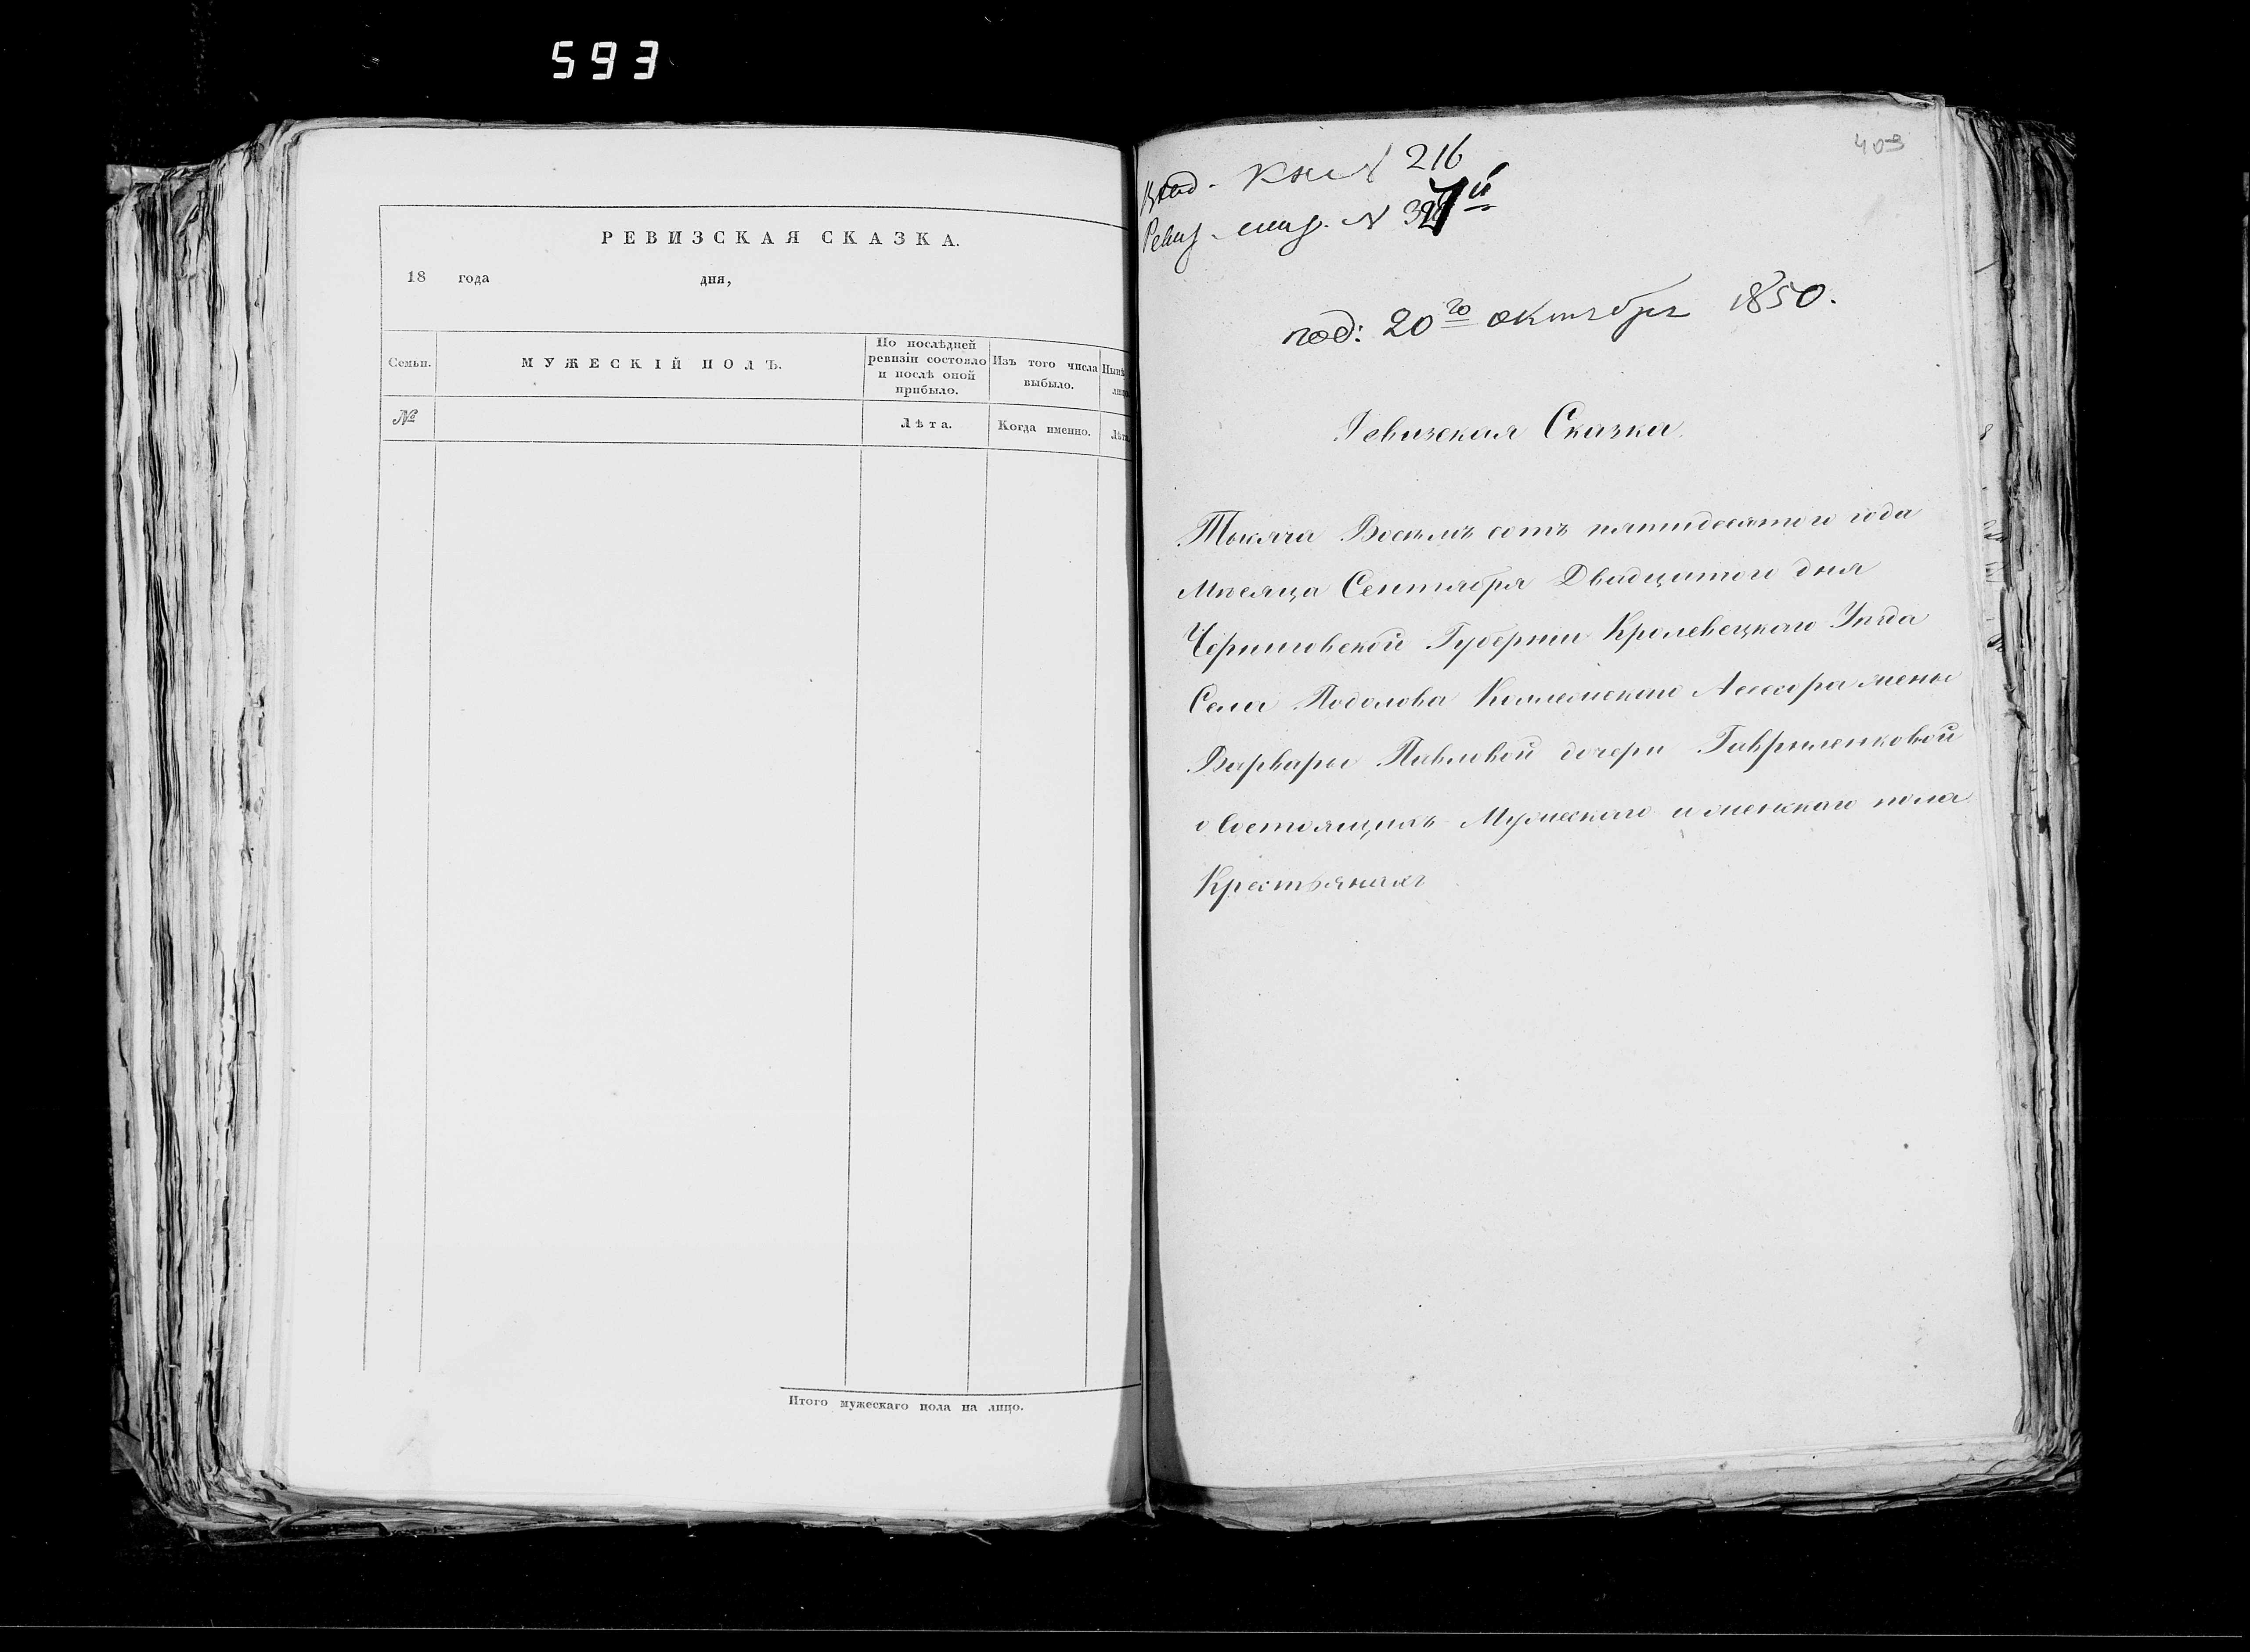 593
РЕВИЗСКАЯ СКАЗКА.
18 года дня,
Семьи.
МУЖЕСКІЙ ПОЛЪ.
По послѣдней ревизіи состояло и послѣ оной прибыло.
Изъ того числа выбыло.
№
Лѣта.
Когда именно.
Итого мужескаго пола на лицо.
403
216
Ревиз. N
под: 20го октября 1850.
Ревизская Сказка
Тысяча Восемь сотъ пятидесятого года
Мѣсяца Сентября Двадцатого дня
Черниговской Губерніи Кролевецкого Уѣзда
Села Подолова Коллежского Асессора жены
Варвары Павловой дочери Гавриленковой
о Состоящихъ Мужеского и женского пола
Крестьянахъ